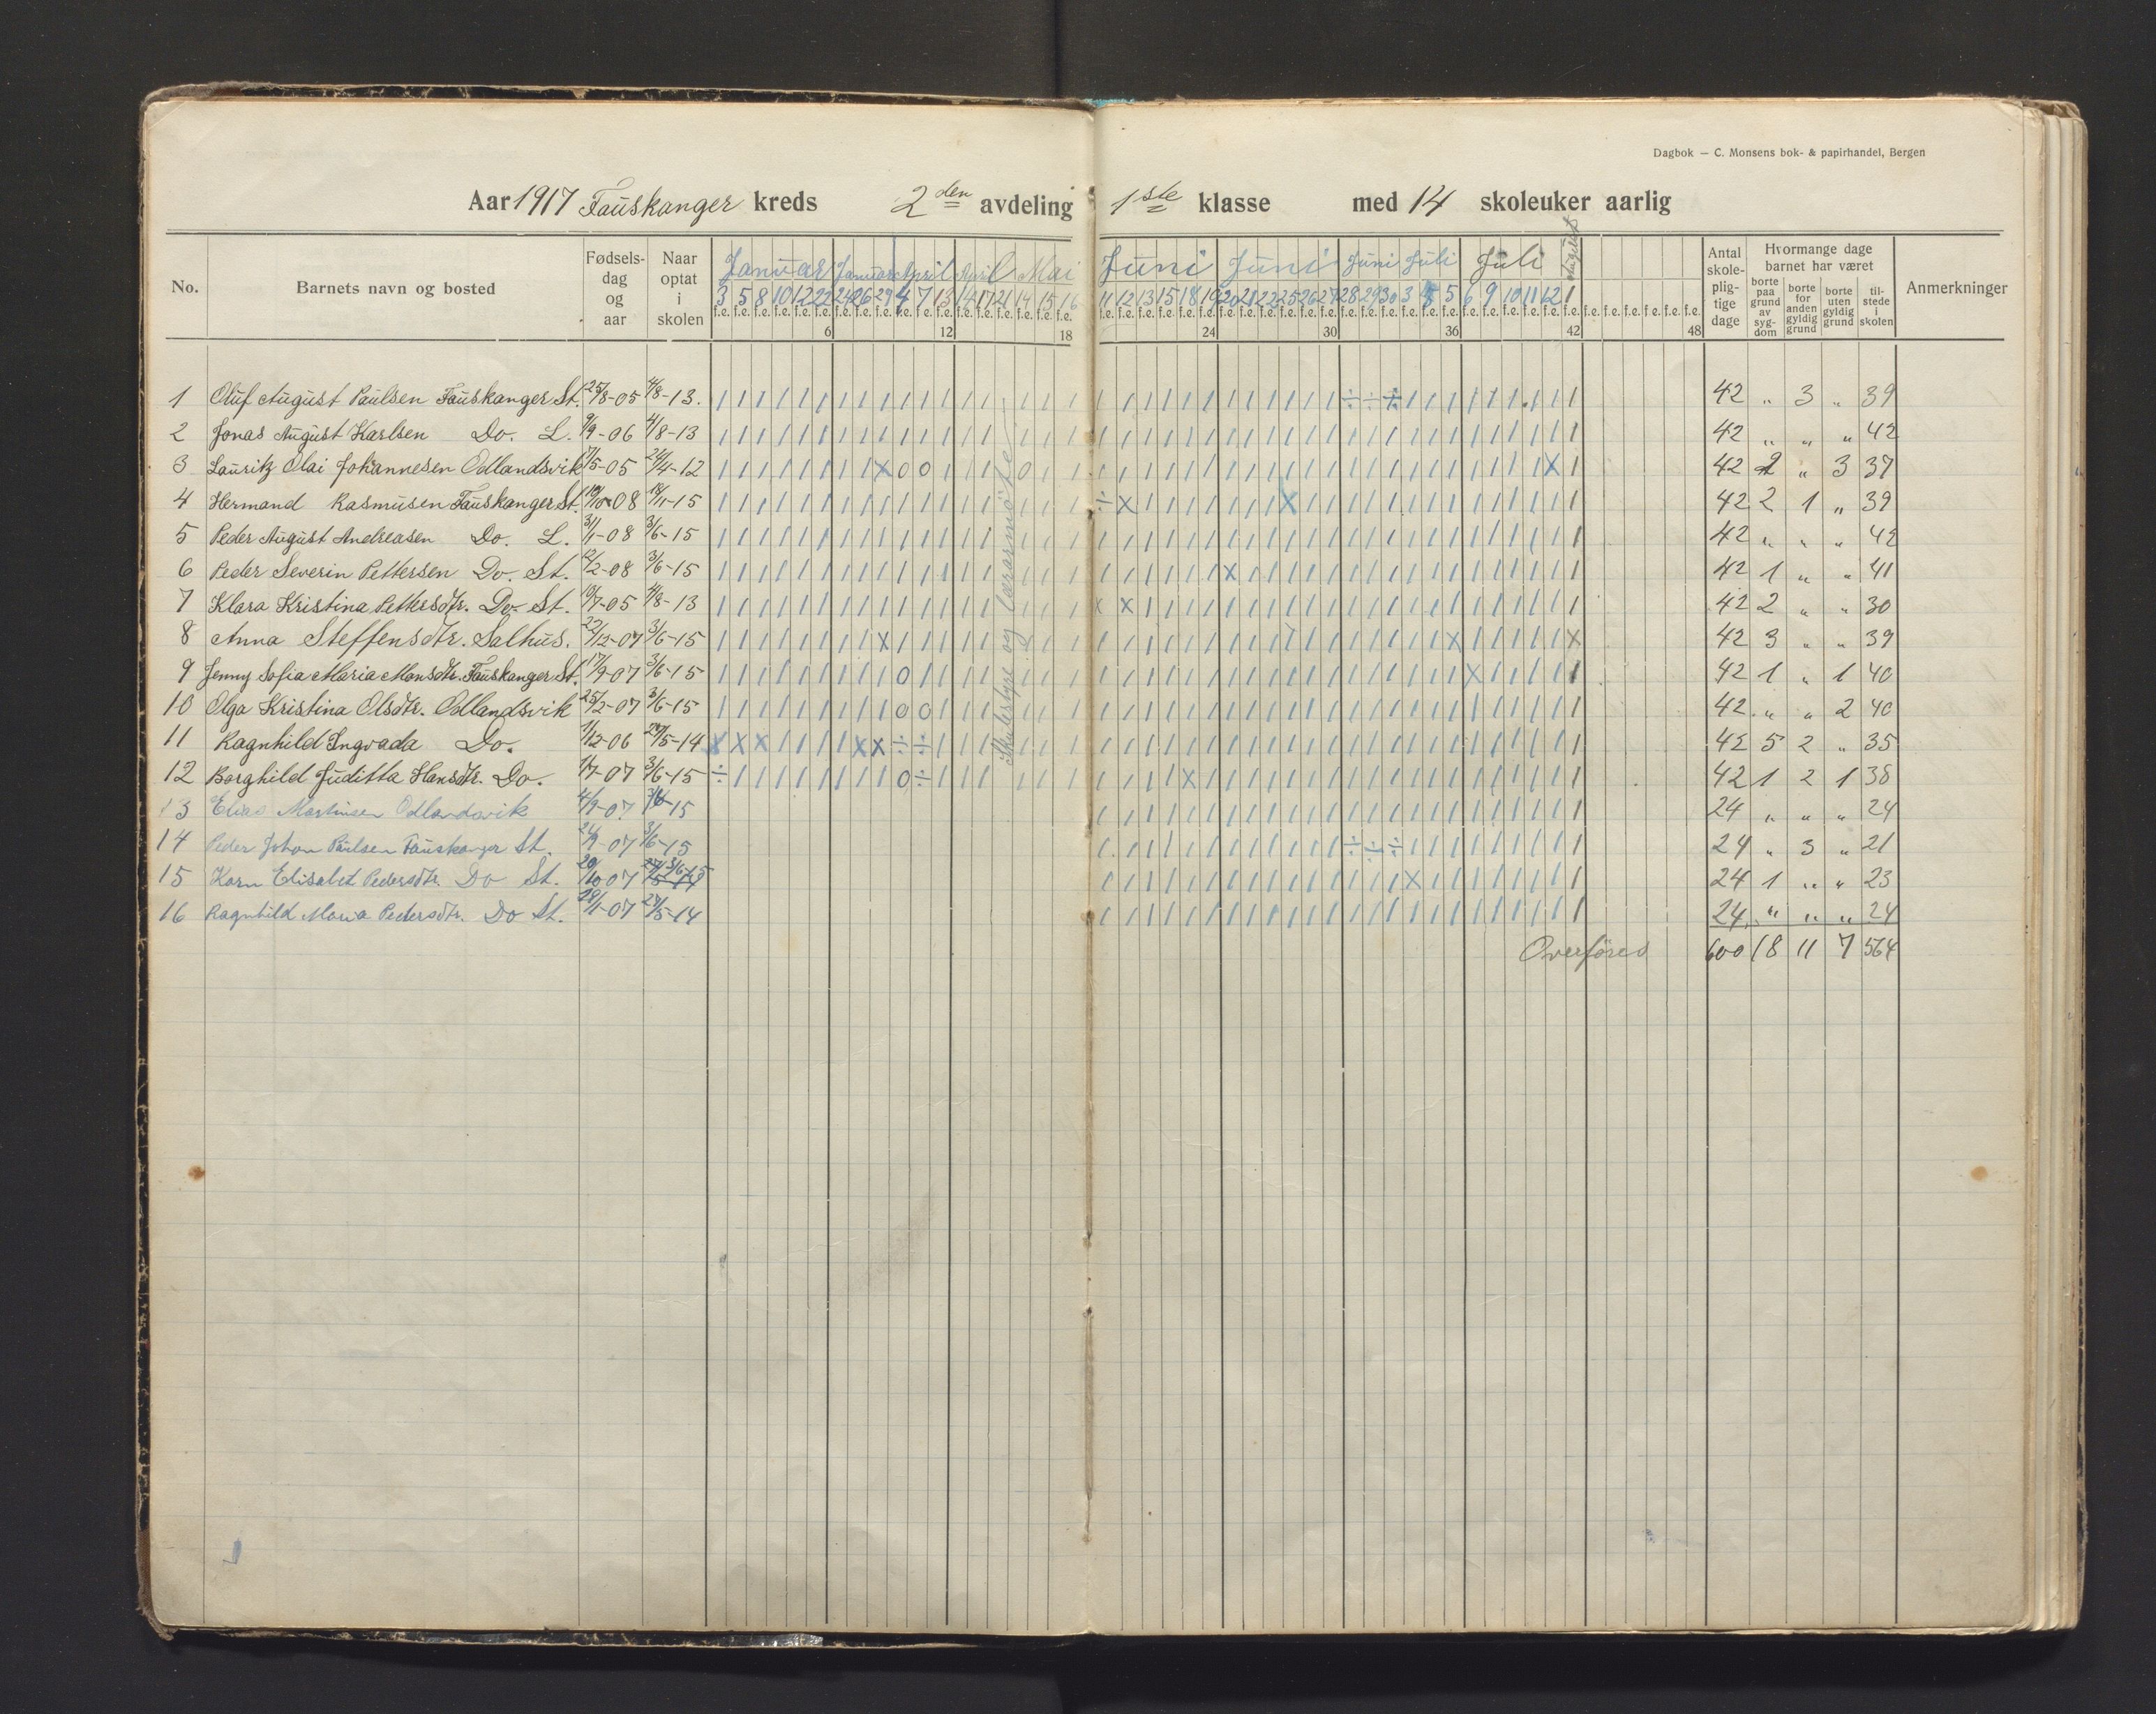 Dagbok — C. Monsens bok- & papirhandel, Bergen
Aar 1917 Fauskanger kreds 2den avdeling 1ste klasse med 14 skoleuker aarlig
No. Barnets navn og bosted Fødselsdag og aar Naar optat i skolen Januar Januar April April Mai Juni Juni Juni Juli Juli Antal skolepligtige dage Hvormange dage barnet har været Anmerkninger
borte paa grund av sygdom borte for anden gyldig grund borte uten gyldig grund tilstede i skolen
3 5 8 10 12 22 24 26 29 4 7 13 14 17 21 14 15 16 11 12 13 15 18 19 20 21 22 25 26 27 28 29 30 3 4 5 6 9 10 11 12 1
f.e. f.e. f.e. f.e. f.e. f.e. f.e. f.e. f.e. f.e. f.e. f.e. f.e. f.e. f.e. f.e. f.e. f.e. f.e. f.e. f.e. f.e. f.e. f.e. f.e. f.e. f.e. f.e. f.e. f.e. f.e. f.e. f.e. f.e. f.e. f.e. f.e. f.e. f.e. f.e. f.e. f.e. f.e. f.e. f.e. f.e. f.e. f.e.
6 12 18 24 30 36 42 48
Skulestyre og lærarmøte
1 Oluf August Paulsen Fauskanger St. 25/8-05 4/8-13. 42 „ 3 „ 39
2 Jonas August Karlsen Do. L. 9/9-06 4/8-13 42 „ „ „ 42
3 Lauritz Olai Johannesen Odlandsvik 17/5-05 24/4-12 42 2 „ 3 37
4 Hermand Rasmusen Fauskanger St. 19/10-08 18/11-15 42 2 1 „ 39
5 Peder August Andreasen Do. L. 31/1-08 3/6-15 42 „ „ „ 42
6 Peder Severin Pettersen Do. St. 12/2-08 3/6-15 42 1 „ „ 41
7 Klara Kristina Pettersdtr. Do. St. 19/7-05 4/8-13 42 2 „ „ 30
8 Anna Steffensdtr. Salhus. 22/12-07 3/6-15 42 3 „ „ 39
9 Jenny Sofia Maria Monsdtr. Fauskanger St. 17/9-07 3/6-15 42 1 „ 1 40
10 Olga Kristina Olsdtr. Odlandsvik 25/2-07 3/6-15 42 „ „ 2 40
11 Ragnhild Ingvada Do. 1/12-06 27/5-14 42 5 2 „ 35
12 Borghild Juditta Hansdtr. Do. 1/7-07 3/6-15 42 1 2 1 38
13 Elias Martinsen Odlandsvik 4/9-07 3/6-15 24 „ „ „ 24
14 Peder Johan Paulsen Fauskanger St. 24/9-07 3/6-15 24 „ 3 „ 21
15 Karn Elisabet Pedersdtr. Do St. 20/10-07 3/6-15 24 1 „ „ 23
16 Ragnhild Maria Pedersdtr. Do St. 28/1-07 27/5-14 24 „ „ „ 24
Overføres 600 18 11 7 564